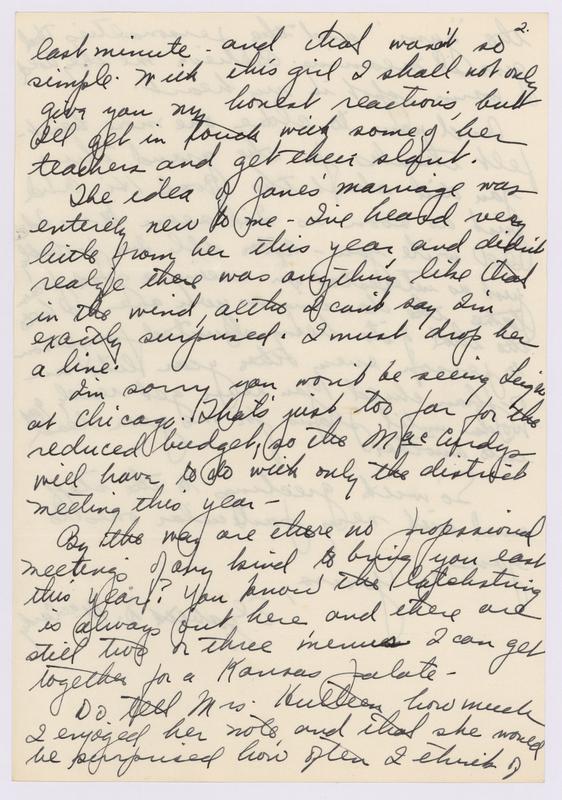 2.
last minute - and that wasn't so
simple. With this girl I shall not only
give you my honest reactions, but
I'll get in touch with some of her
teachers and get their slant.
The idea of Jane's marriage was
entirely new to me - I've heard very
little from her this year, and didn't
realize there was anything like that
in the wind, altho I can't say I'm
exactly surprised. I must drop her
a line.
I'm sorry you won't be seeing
at Chicago. That's just too far for the
reduced budget, so the MacCurdys
will have to do with only the district
meeting this year -
By the way are there no professional
meetings of any kind to bring you east
this year? You know the latchstring
is always out here and there are
still two or three menus I can get
together for a Kansas palate -
Do tell Mrs. Hulteen how much
I enjoyed her note, and that she would
be surprised how often I think of